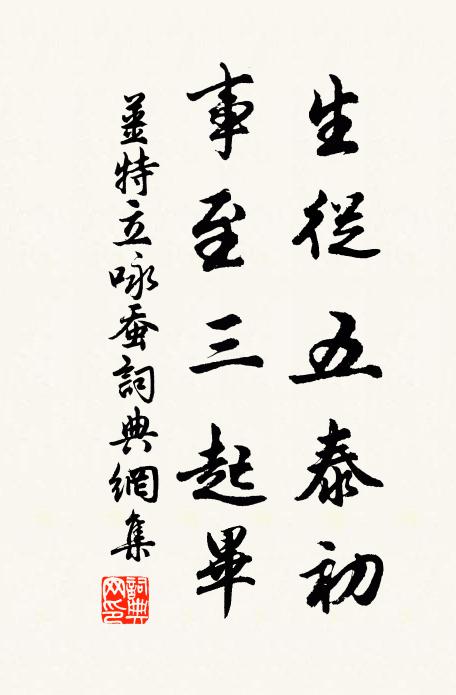 生從五泰初
事至三起畢
薑特立咏蚕詞典網集
詞典网印